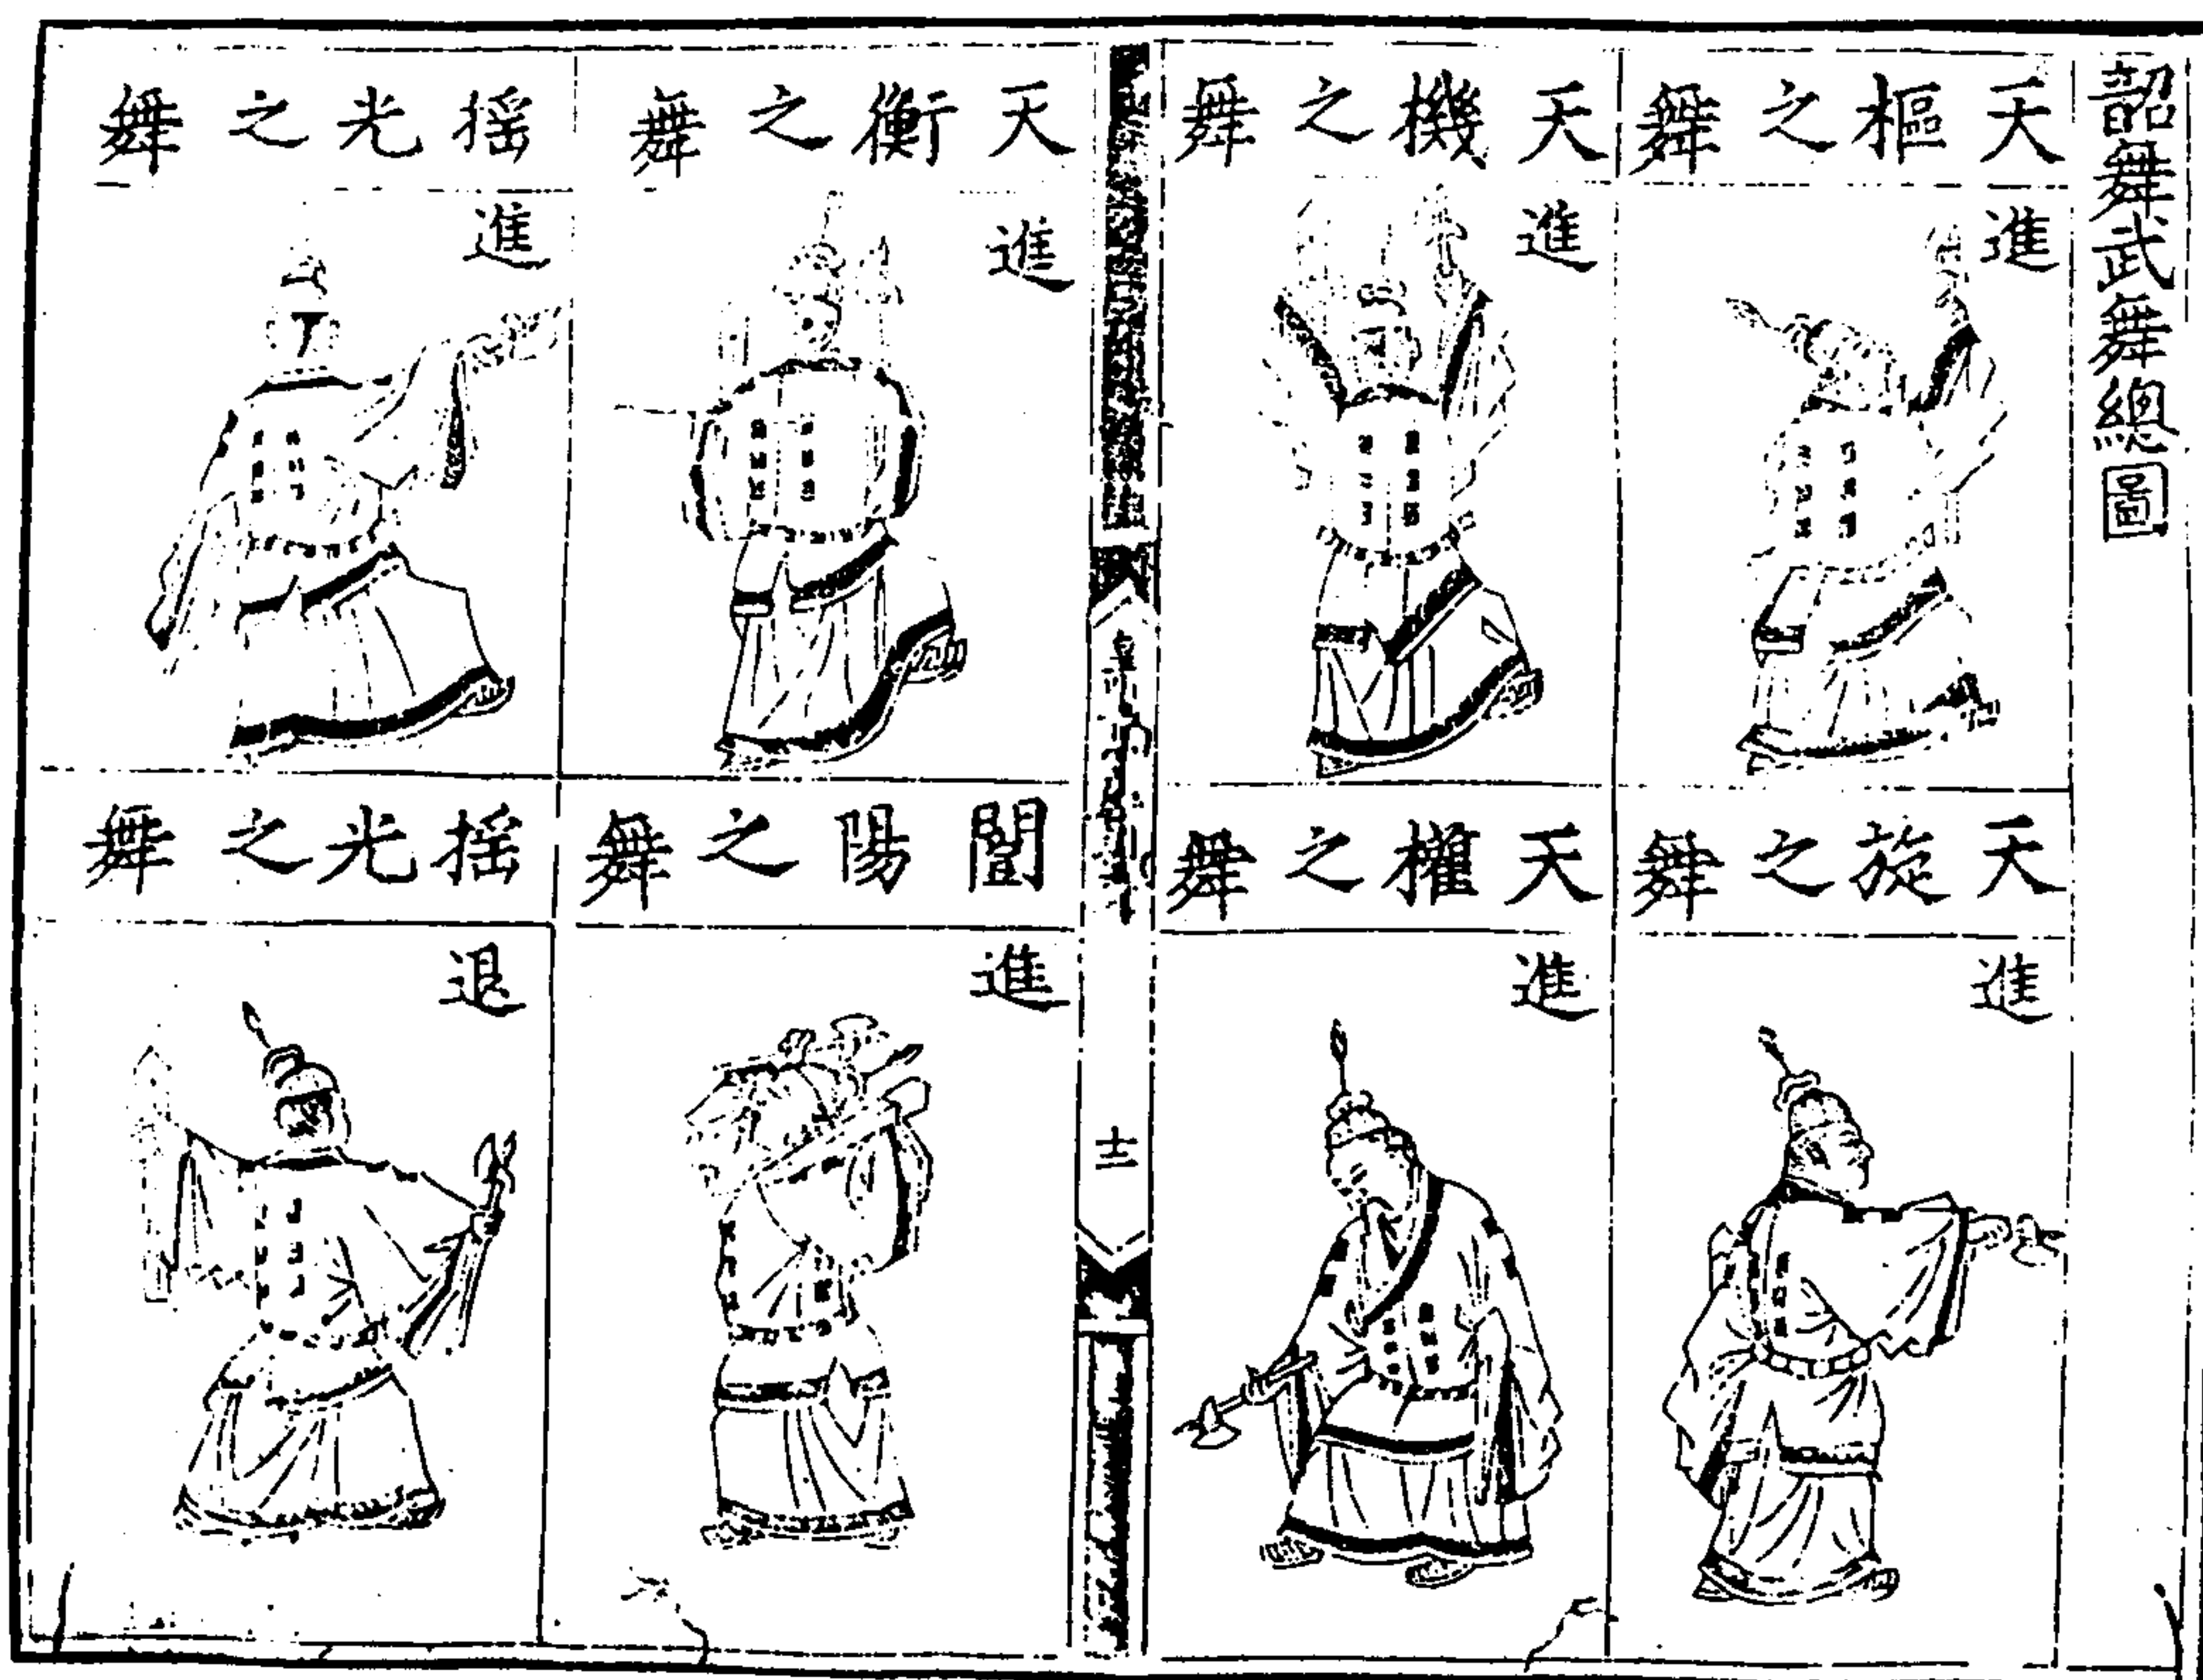 韶舞武舞總圖
天樞之舞
進
天旋之舞
進
天機之舞
進
天權之舞
進
十二
天衡之舞
進
闓陽之舞
進
揺光之舞
進
揺光之舞
退